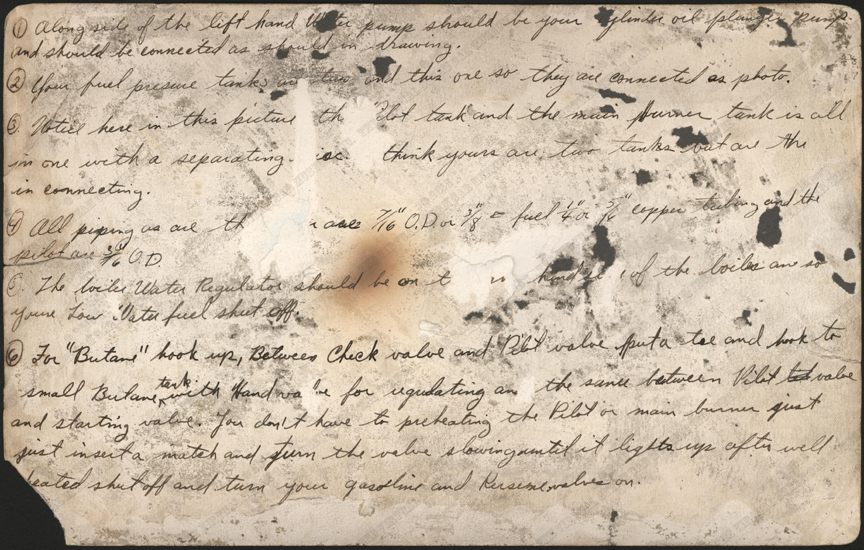 ① Along side of the left hand Water pump should be your cylinder oil plunger pump
and should be connected as should in drawing.
② Your fuel presure tanks and this one so they are connected as photo.
3. Notice here in this picture th Pilot tank and the main Burner tank is all
in one with a separating think yours are two tanks but are the
in connecting.
4 All piping as are th are 7/16" O.D. or 3/8" = fuel 1/4" or copper tubing and the
pilot are 3/16 O.D.
5. The boiler Water Regulator should be on t of the boiler are so
youre Low Water fuel shut off.
⑥ For "Butane" hook up, Between Check valve and Pilot valve put a tee and hook to
small Butane tank with Hand valve for regulating an the same between Pilot valve
and starting valve. You don't have to preheating the Pilot or main burner just
just insert a match and turn the valve slowing until it lights up after well
heated shut off and turn your gasoline and Kersene valves on.